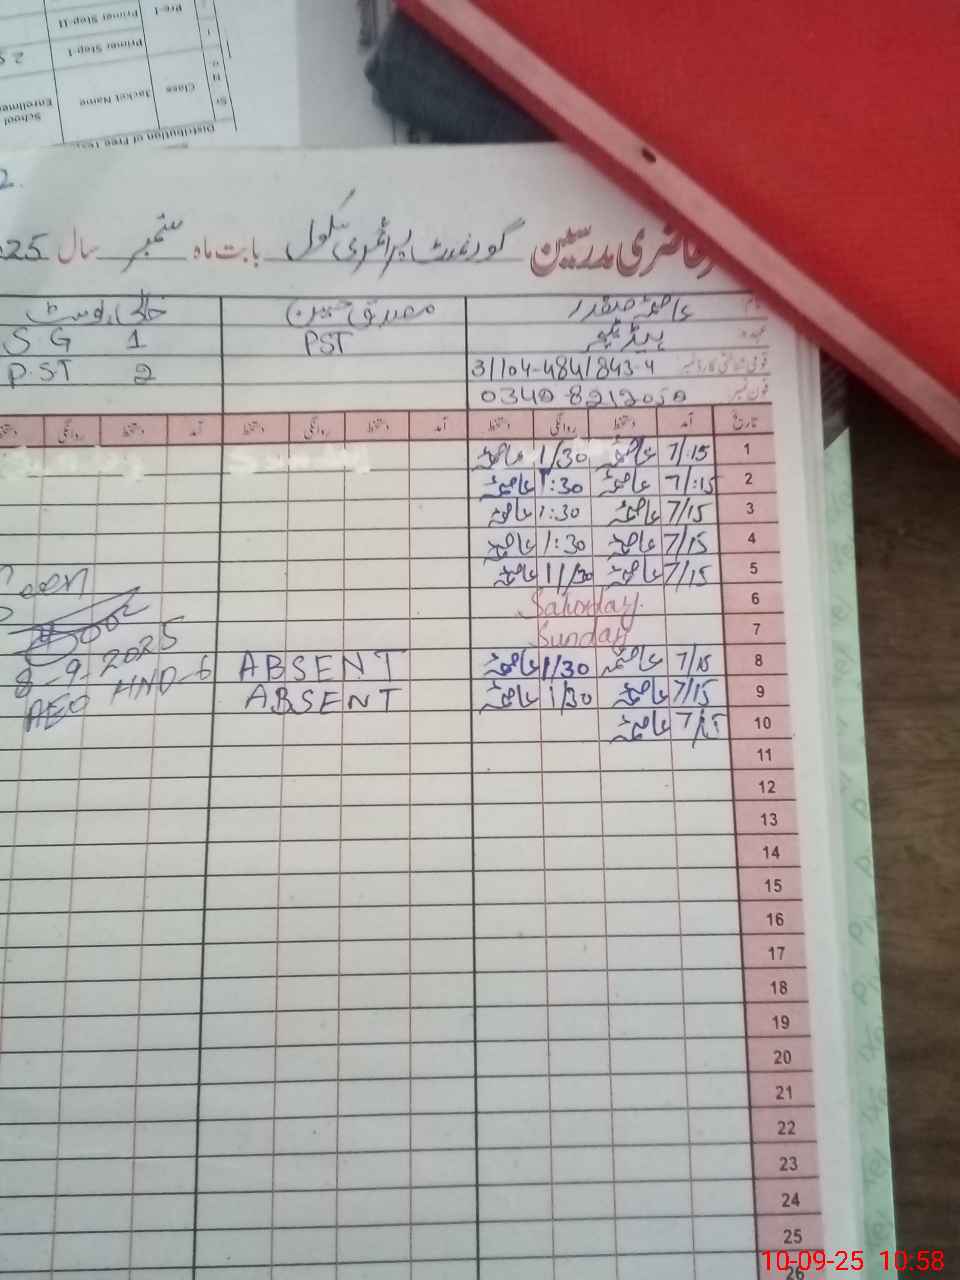 حاضری مدرسین گورنمنٹ پرائمری سکول بابت ماہ ستمبر سال 2025
نام عاصمہ صفدر مصدق حسین خالی پوسٹ
عہدہ ہیڈ ٹیچر PST SG 1
قومی شناختی کارڈ نمبر 31104-4841843-4 P.ST 2
فون نمبر 0340-8212050
تاریخ آمد دستخط روانگی دستخط آمد دستخط روانگی دستخط آمد دستخط روانگی دستخط
1 7/:15 عاصمہ 1/30 عاصمہ Sunday Sunday
2 7/:15 عاصمہ 1:30 عاصمہ
3 7/15 عاصمہ 1:30 عاصمہ
4 7/15 عاصمہ 1:30 عاصمہ
5 7/15 عاصمہ 1/30 عاصمہ Seen
6 Saturday
7 Sunday
8 7/15 عاصمہ 1/30 عاصمہ ABSENT 8-9-2025
9 7/15 عاصمہ 1/30 عاصمہ ABSENT AEO HND-6
10 7/15 عاصمہ
11
12
13
14
15
16
17
18
19
20
21
22
23
24
25
26
Distribution of Free
Sr Class Jacket Name School Enrollment
Primer Step-I
Pre-I Primer Step-II
10-09-25 10:58